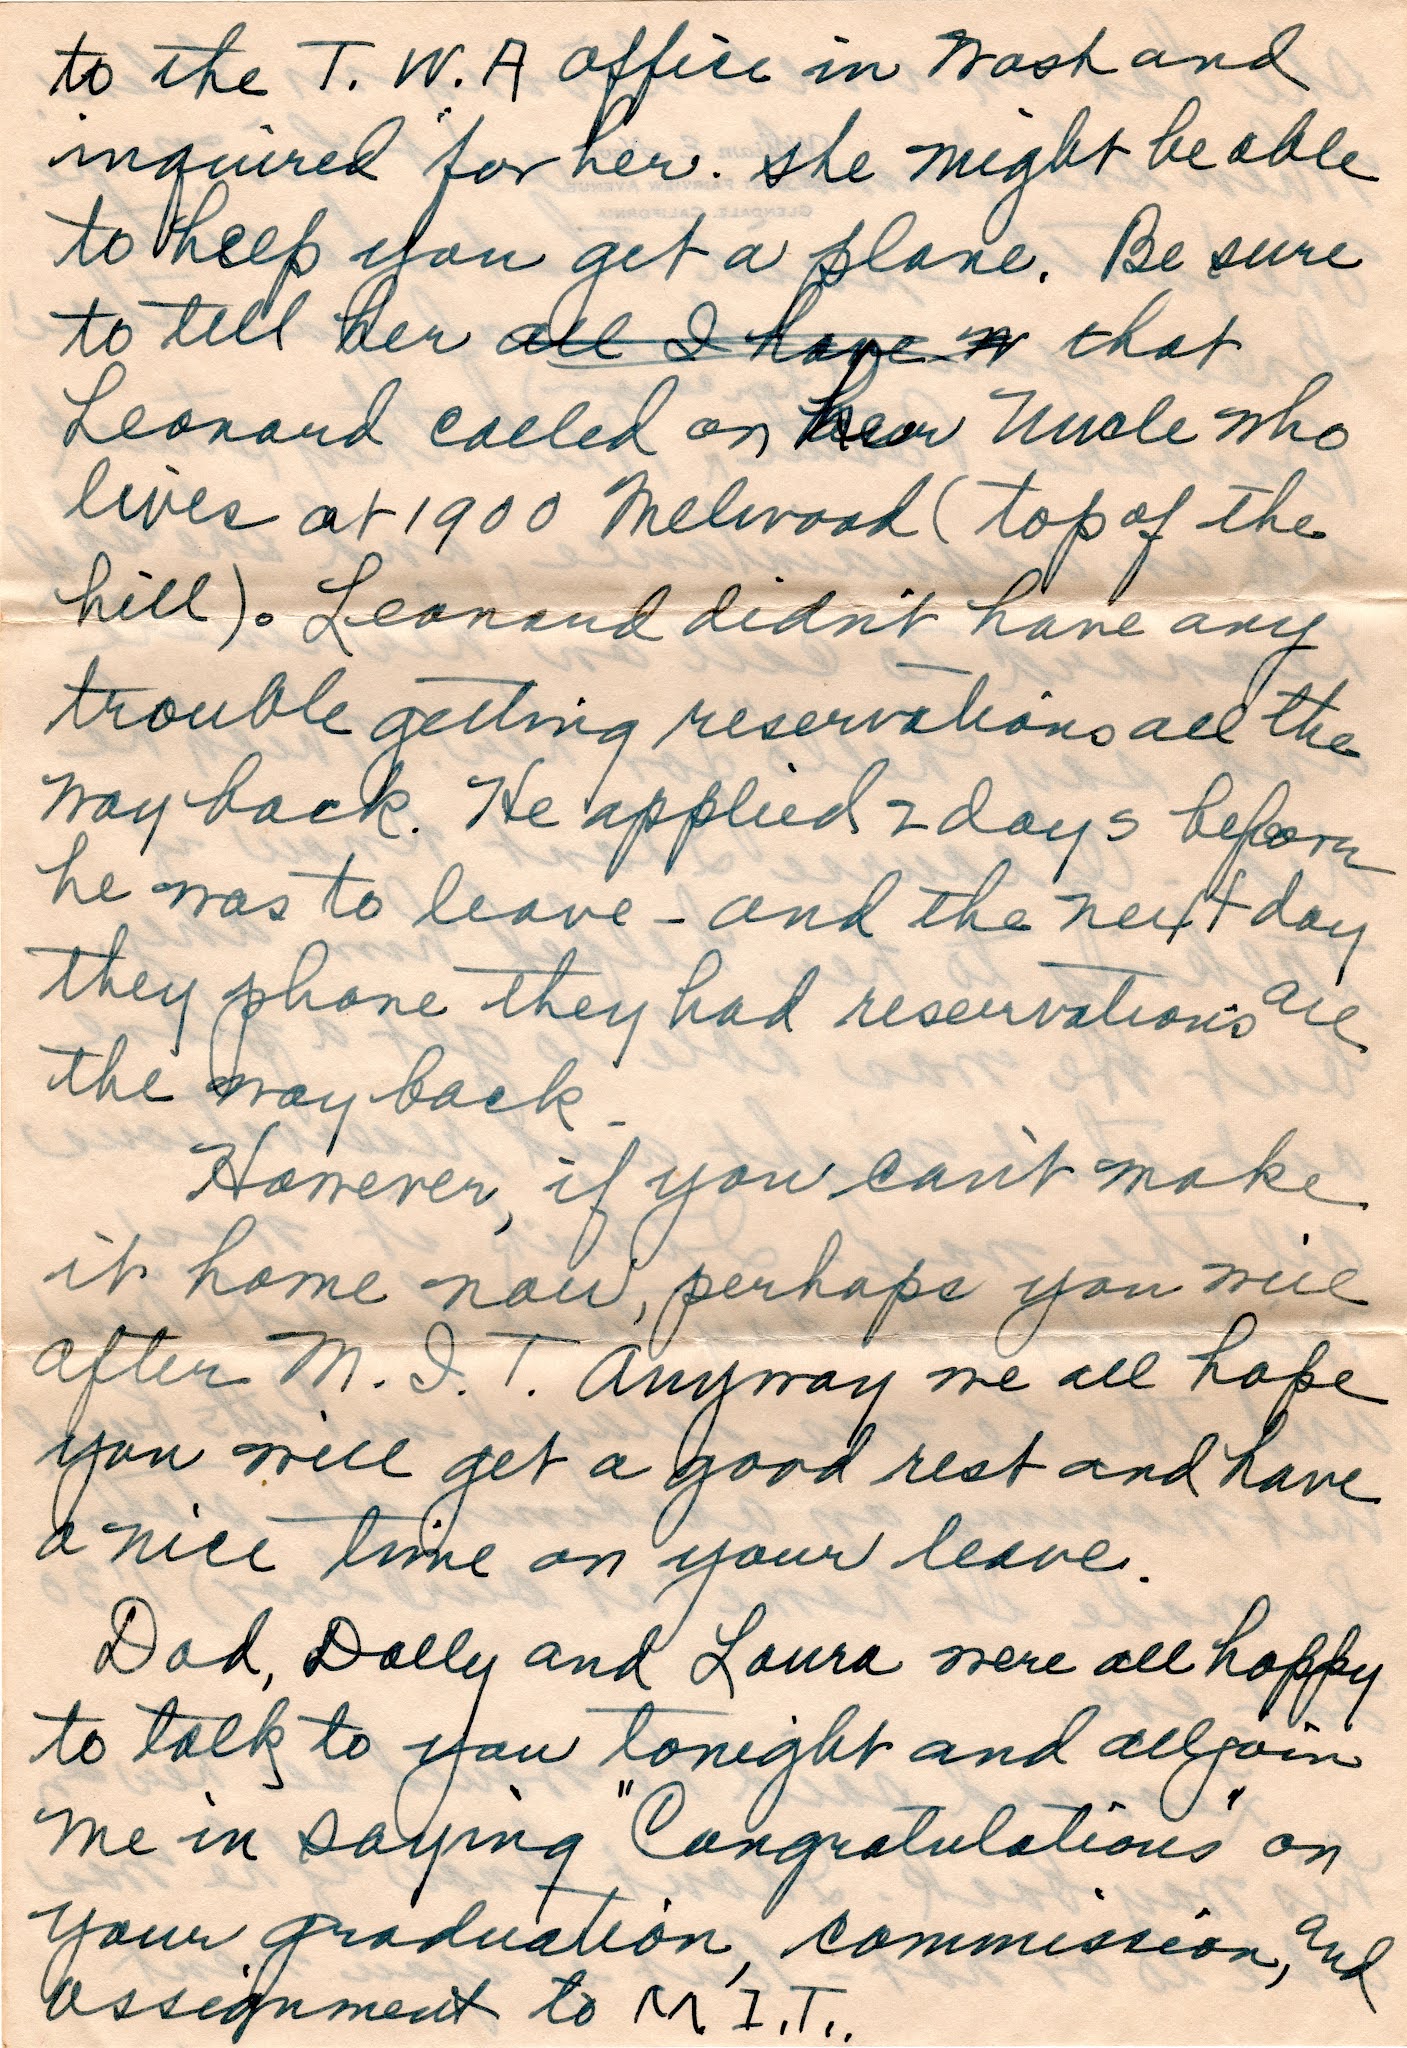 to the T. W. A office in Wash and
inquired for her. She might be able
to help you get a plane. Be sure
to tell her all I have that
Leonard called on her Uncle who
lives at 1900 Melwood (top of the
hill). Leonard didn't have any
trouble getting reservations all the
way back. He applied 2 days before
he was to leave - and the next day
they phone they had reservations all
the way back.
However, if you can't make
it home now, perhaps you will
after M. I. T. Anyway we all hope
you will get a good rest and have
a nice time on your leave.
Dad, Dolly and Laura were all happy
to talk to you tonight and all join
me in saying "Congratulations" on
your graduation, commission, and
assignment to M. I. T..